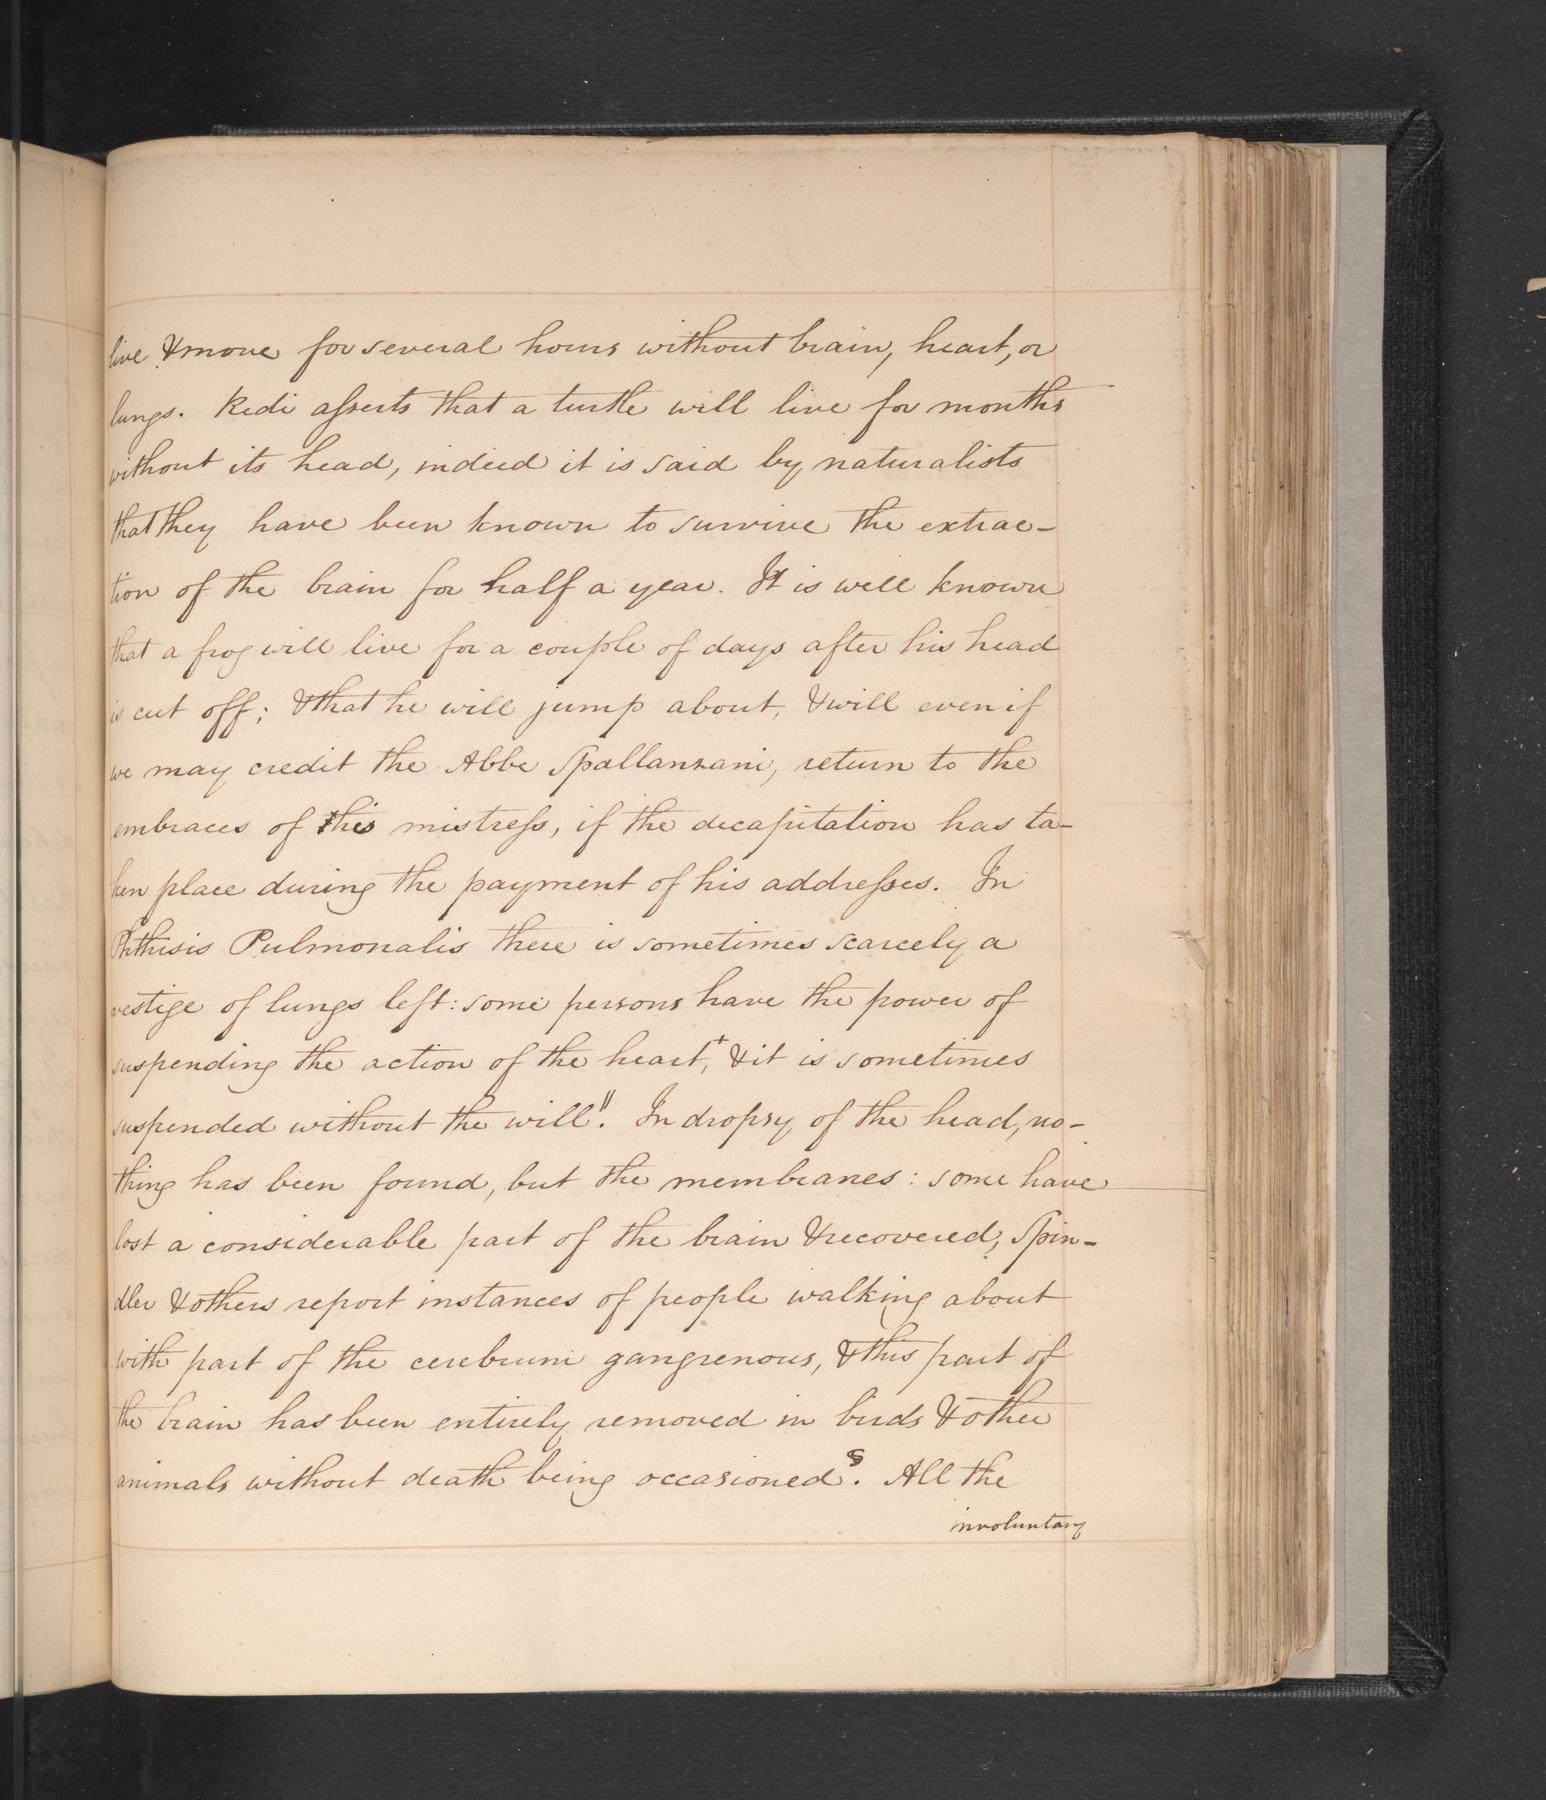 live & move for several hours without brain, heart, or
lungs. Redi aſserts that a turtle will live for months
without its head, indeed it is said by naturalists
that they have been known to survive the extrac-
tion of the brain for half a year. It is well known
that a frog will live for a couple of days after his head
is cut off; & that he will jump about, & will even if
we may credit the Abbe Spallanzani, return to the
embraces of his mistreſs, if the decapitation has ta-
ken place during the payment of his addreſses. In
Phthisis Pulmonalis there is sometimes scarcely a
vestige of lungs left: some persons have the power of
suspending the action of the heart,+ & it is sometimes
suspended without the will". In dropsy of the head, no-
thing has been found, but the membranes: some have
lost a considerable part of the brain & recovered; Spin-
dler & others report instances of people walking about
with part of the cerebrum gangrenous, & this part of
the brain has been entirely removed in birds & other
animals without death being occasioned§. All the
involuntary